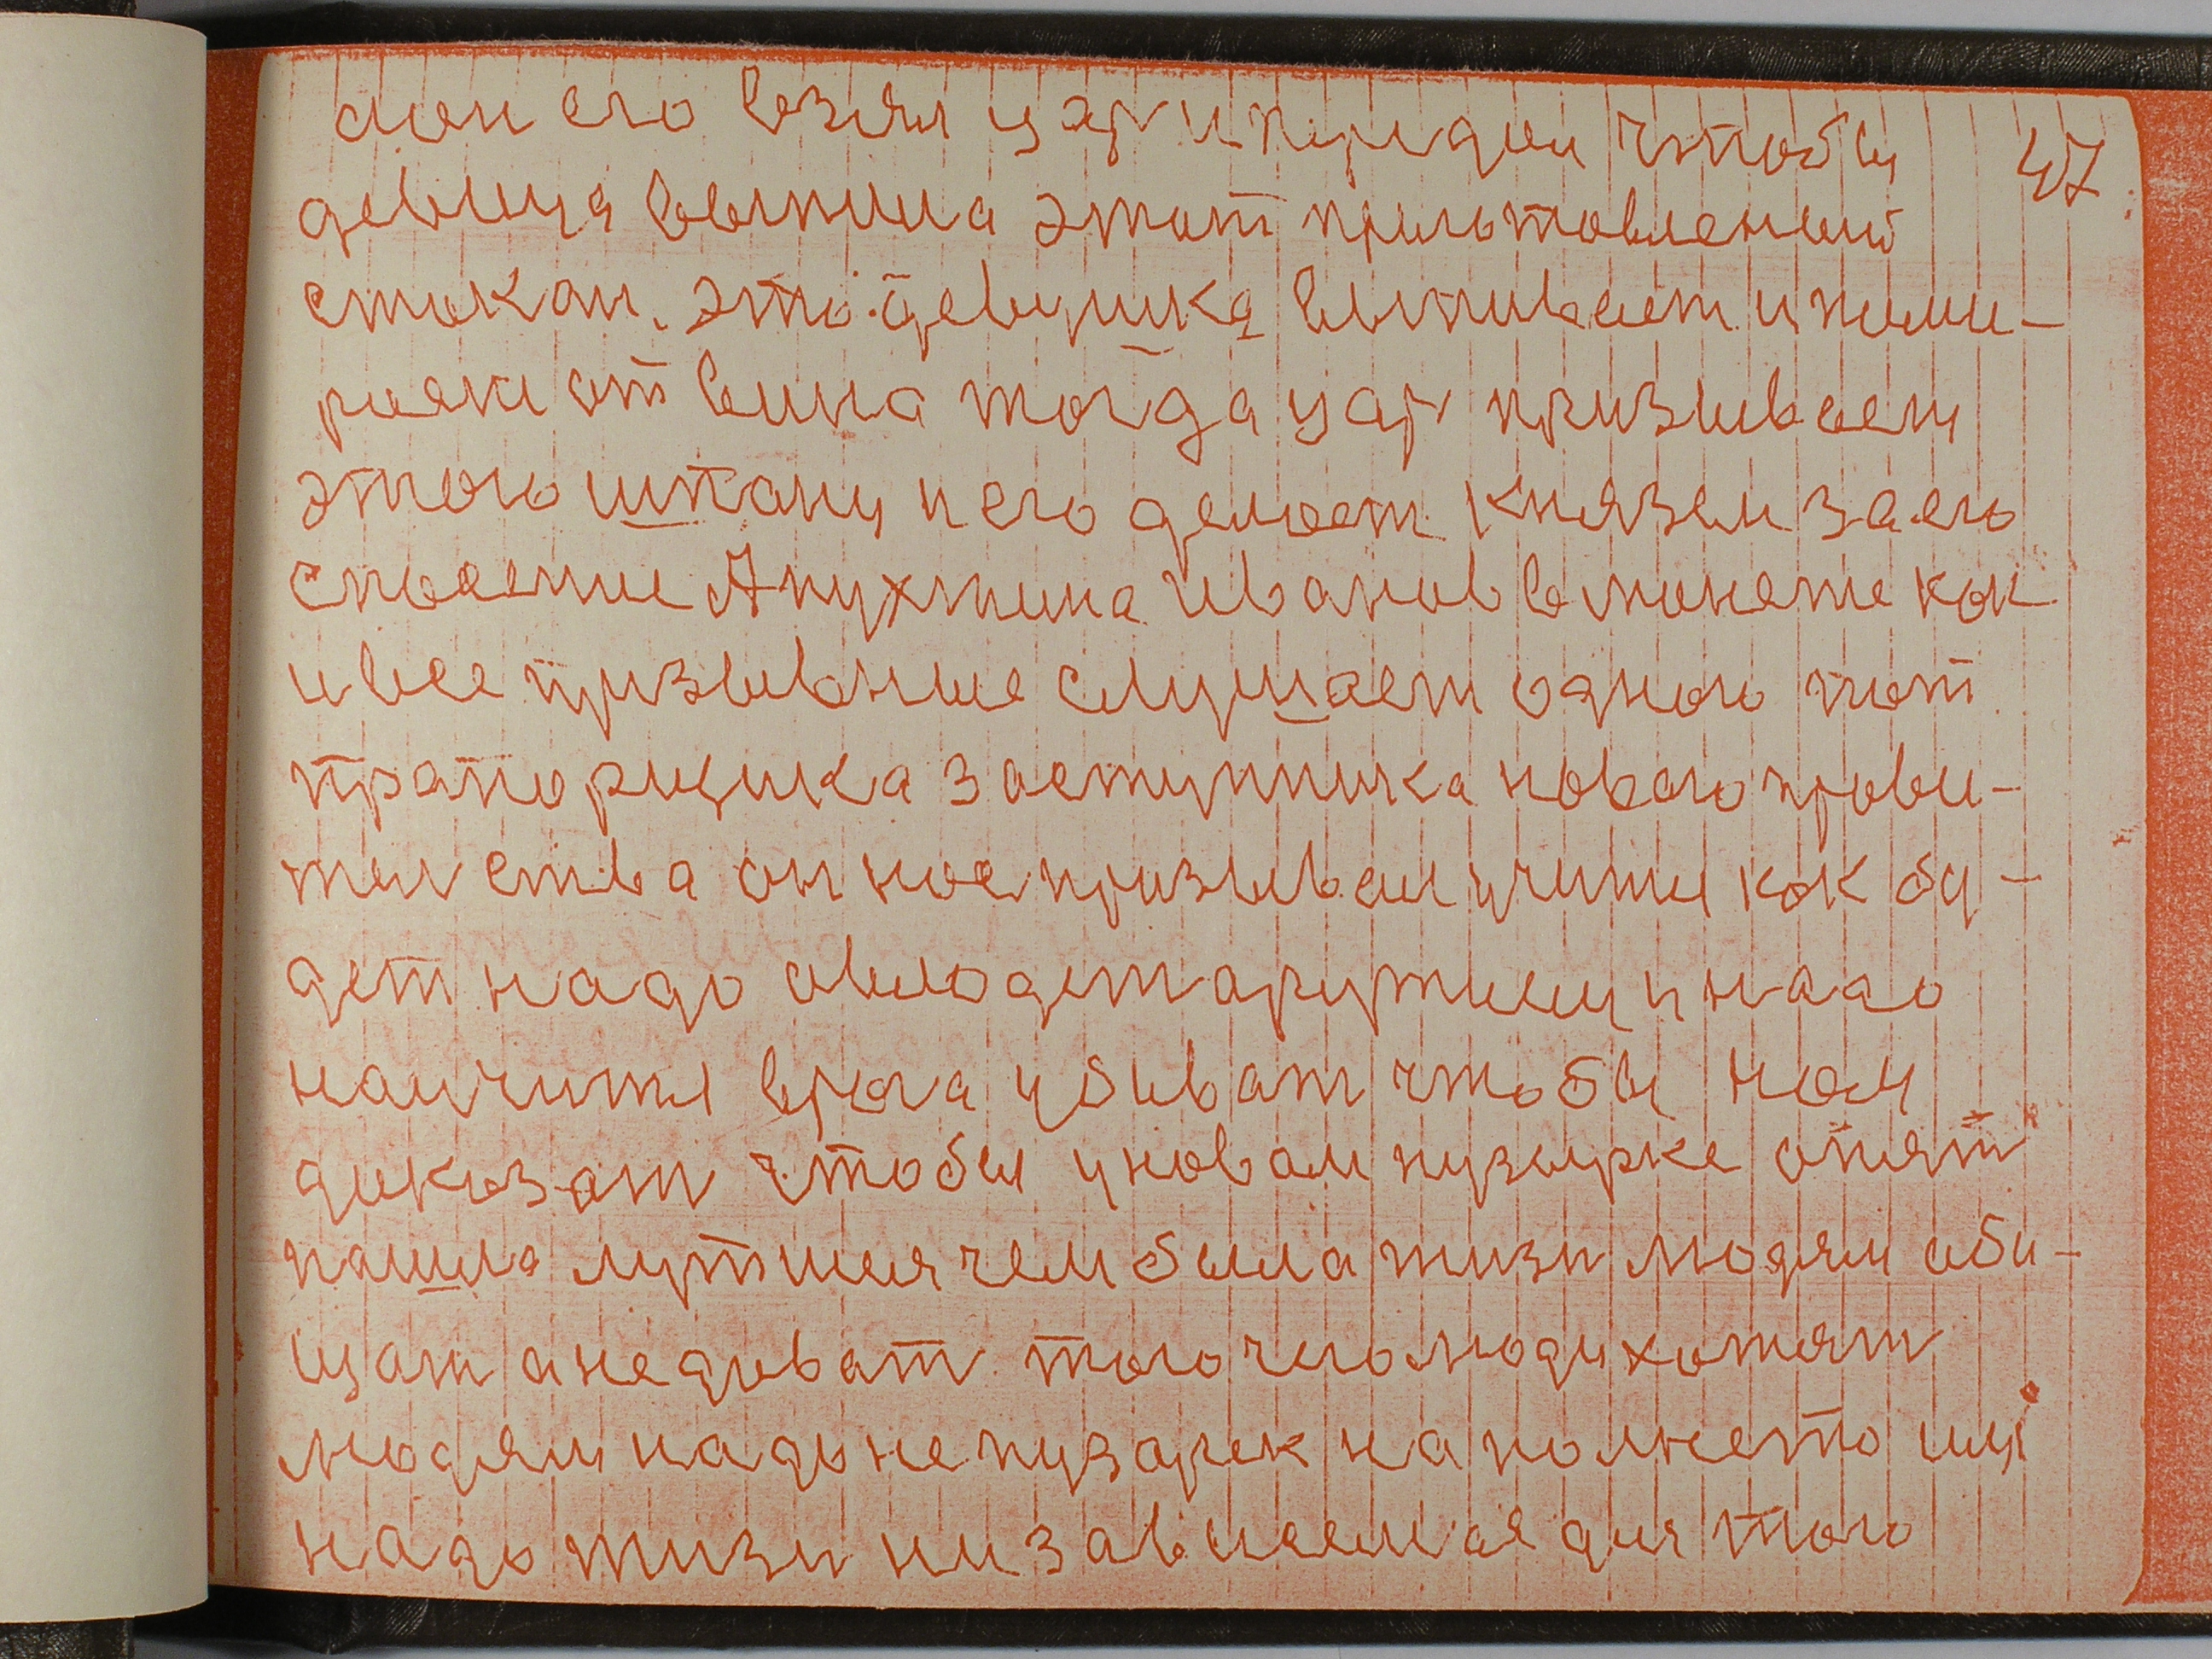 он его взял царипридои чтобы 47
девица выпила этотприготовленый
стокан. это девушка выпивает ипоми-
раяи от вина тогда цар призывает
этого штпану иего делоет князем заего
споесние Апухтина Иванов вмонете как
ивсе призывные слушает одного тот
прапорщика заступника новаго прави-
телства он нас призывал учиты как бу-
дет надо овлодет аружием инадо
научиты врага убиват чтобы нам
доказат чтобы уновам пузырке опят
пашла лутшия чем была жизн людям оби-
щат анедоват того чего люди хотят
людям надо не пузарек наполнето ищ
надо жизн низависемая для того